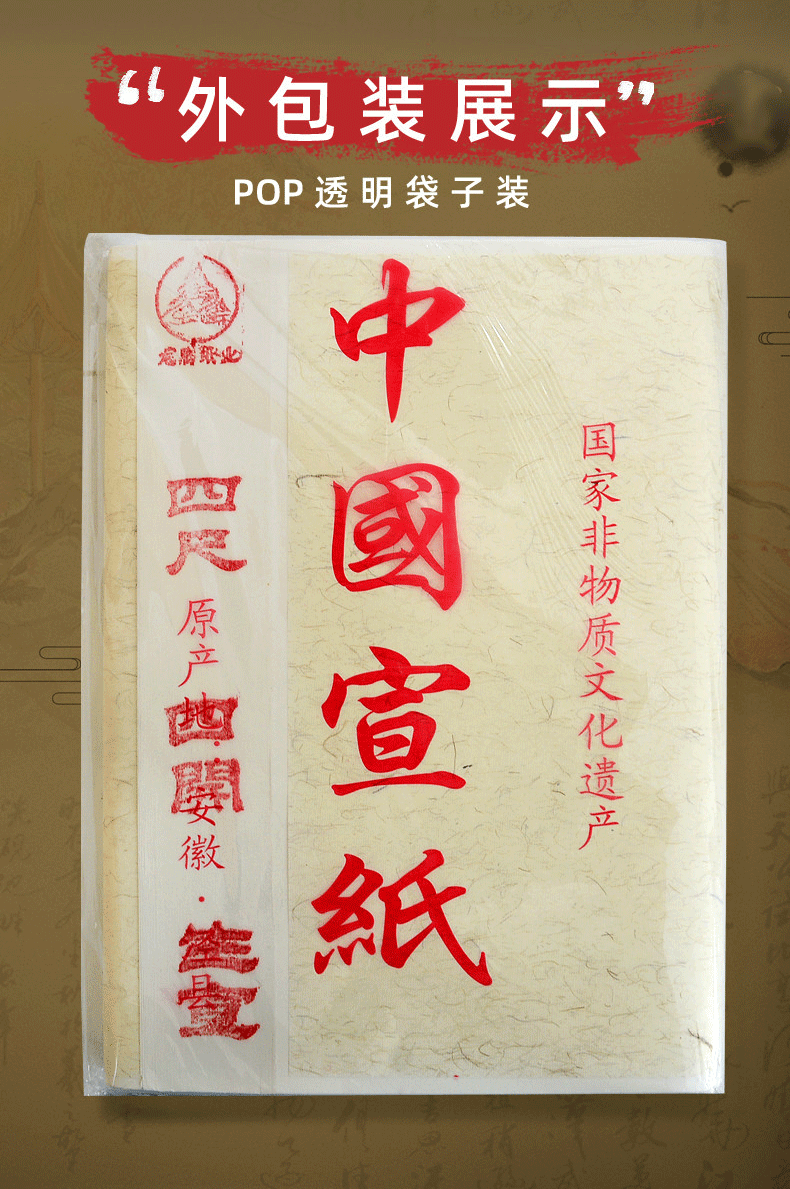 “外包装展示”
POP透明袋子装
国家非物质文化遗产
中國宣紙
四尺
四開
生宣
原产地·安徽·